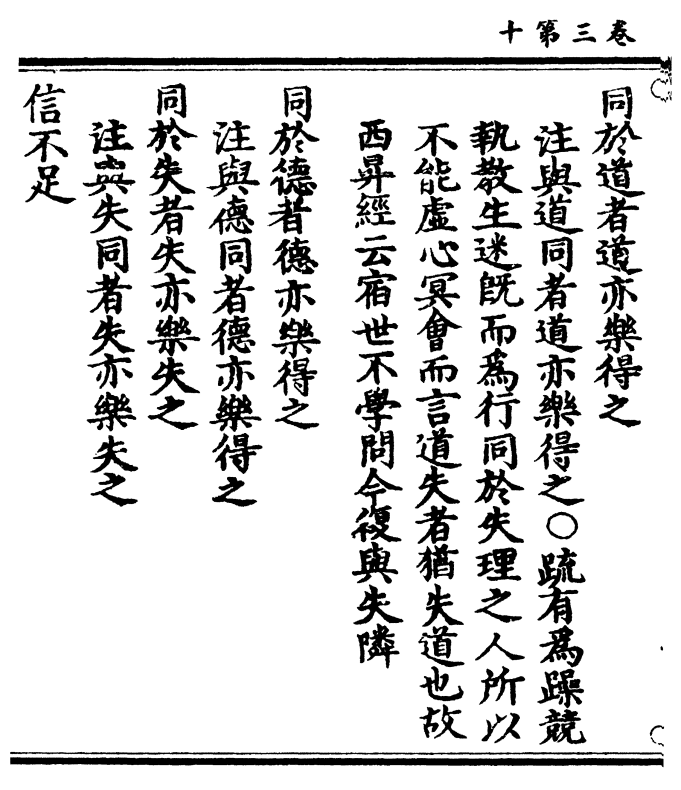 卷三第十
同於道者道亦樂得之
注與道同者道亦樂得之〇疏有爲躁競
執教生迷旣而爲行同於失理之人所以
不能虛心冥會而言道失者猶失道也故
西昇經云宿世不學問今復與失隣
同於德者德亦樂得之
注與德同者德亦樂得之
同於失者失亦樂失之
注與失同者失亦樂失之
信不足